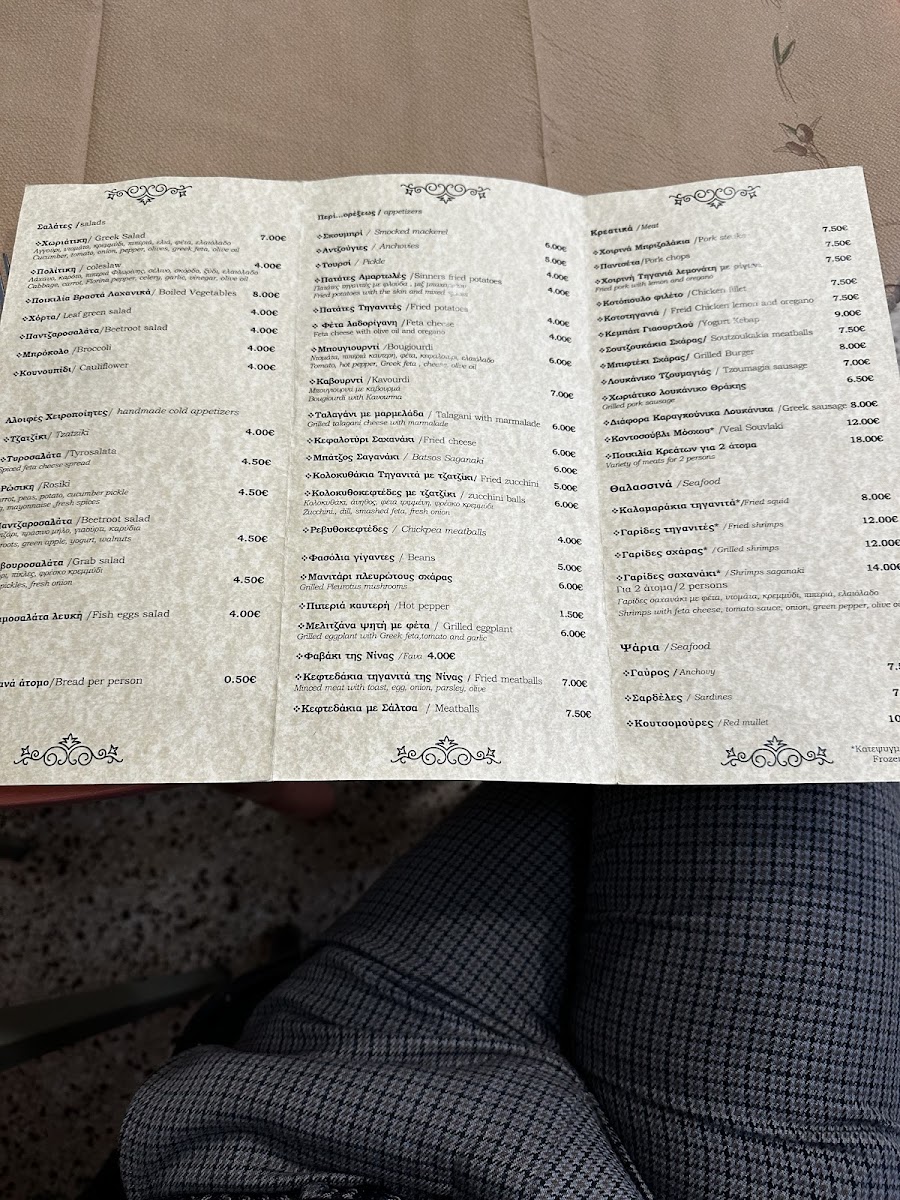 Σαλάτες /salads
❖Χωριάτικη/ Greek Salad 7.00€
Αγγουρι, ντομάτα, κρεμμύδι, πιπεριά, ελιά, φέτα, ελαιόλαδο
Cucumber, tomato, onion, pepper, olives, greek feta, olive oil
❖Πολίτικη / coleslaw 4.00€
Λάχανο, καρότο, πιπεριά Φλωρίνης, σέλινο, σκόρδο, ξύδι, ελαιόλαδο
Cabbage, carrot, Florina pepper, celery, garlic, vinegar, olive oil
❖Ποικιλία Βραστά Λαχανικά/ Boiled Vegetables 8.00€
❖Χόρτα/ Leaf green salad 4.00€
❖Παντζαροσαλάτα/Beetroot salad 4.00€
❖Μπρόκολο /Broccoli 4.00€
❖Κουνουπίδι/ Cauliflower 4.00€
Αλοιφές Χειροποίητες/ handmade cold appetizers
❖Τζατζίκι/ Tzatziki 4.00€
❖Τυροσαλάτα /Tyrosalata 4.50€
Spiced feta cheese spread
Ρώσικη /Rosiki 4.50€
carrot, peas, potato, cucumber pickle
mayonnaise, fresh spices
αντζαροσαλάτα /Beetroot salad 4.50€
πράσινο μήλο, γιαούρτι, καρύδια
roots, green apple, yogurt, walnuts
βουροσαλάτα /Grab salad 4.50€
πίκλες, φρέσκο κρεμμύδι
pickles, fresh onion
μοσαλάτα λευκή /Fish eggs salad 4.00€
ανά άτομο/Bread per person 0.50€
Περί...ορέξεως / appetizers
❖Σκουμπρί / Smocked mackerel 6.00€
❖Αντζούγιες / Anchouses 5.00€
❖Τουρσί / Pickle 4.00€
❖Πατάτες Αμαρτωλές /Sinners fried potatoes 4.00€
Πατάτες τηγανιτές με φλούδα , μιξ
Fried potatoes with the skin and mixed
❖Πατάτες Τηγανιτές /Fried potatoes 4.00€
❖ Φέτα λαδορίγανη /Feta cheese 4.00€
Feta cheese with olive oil and oregano
❖Μπουγιουρντί /Bougiourdi 6.00€
Ντομάτα, πιπεριά καυτερή, φέτα, κεφαλοτύρι, ελαιόλαδο
Tomato, hot pepper, Greek feta , cheese, olive oil
❖Καβουρντί /Kavourdi 7.00€
Μπουγιουρντί με καβουρμά
Bougiourdi with Kavourma
❖Ταλαγάνι με μαρμελάδα / Talagani with marmalade 6.00€
Grilled talagani cheese with marmalade
❖Κεφαλοτύρι Σαχανάκι /Fried cheese 6.00€
❖Μπάτζος Σαγανάκι / Batsos Saganaki 6.00€
❖Κολοκυθάκια Τηγανιτά με τζατζίκι/ Fried zucchini 5.00€
❖Κολοκυθοκεφτέδες με τζατζίκι/ zucchini balls 6.00€
Κολοκυθάκια, άνηθος, φέτα τριμμένη, φρέσκο κρεμμύδι
Zucchini, dill, smashed feta, fresh onion
❖Ρεβυθοκεφτέδες / Chickpea meatballs 4.00€
❖Φασόλια γίγαντες / Beans 5.00€
❖Μανιτάρι πλευρώτους σχάρας 6.00€
Grilled Pleurotus mushrooms
❖Πιπεριά καυτερή /Hot pepper 1.50€
❖Μελιτζάνα ψητή με φέτα / Grilled eggplant 6.00€
Grilled eggplant with Greek feta,tomato and garlic
❖Φαβάκι της Νίνας /Fava 4.00€
❖Κεφτεδάκια τηγανιτά της Νίνας / Fried meatballs 7.00€
Minced meat with toast, egg, onion, parsley, olive
❖Κεφτεδάκια με Σάλτσα / Meatballs 7.50€
Κρεατικά /Meat
❖Χοιρινά Μπριζολάκια /Pork steaks 7.50€
❖Παντσέτα/Pork chops 7.50€
❖Χοιρινή Τηγανιά λεμονάτη με ρίγανη 7.50€
Fried pork with lemon and oregano
❖Κοτόπουλο φιλέτο /Chicken fillet 7.50€
❖Κοτοτηγανιά / Freid Chicken lemon and oregano 7.50€
❖Κεμπάπ Γιαουρτλού /Yogurt Kebap 9.00€
❖Σουτζουκάκια Σχάρας/ Soutzoukakia meatballs 7.50€
❖Μπιφτέκι Σχάρας/ Grilled Burger 8.00€
❖Λουκάνικο Τζουμαγιάς / Tzoumagia sausage 7.00€
❖Χωριάτικο λουκάνικο Θράκης 6.50€
Grilled pork sausage
❖Διάφορα Καραγκούνικα Λουκάνικα /Greek sausage 8.00€
❖Κοντοσούβλι Μόσχου* /Veal Souvlaki 12.00€
❖Ποικιλία Κρεάτων για 2 άτομα 18.00€
Variety of meats for 2 persons
Θαλασσινά /Seafood
❖Καλαμαράκια τηγανιτά*/Fried squid 8.00€
❖Γαρίδες τηγανιτές* /Fried shrimps 12.00€
❖Γαρίδες σχάρας* /Grilled shrimps 12.00€
❖Γαρίδες σαχανάκι* /Shrimps saganaki 14.00€
Για 2 άτομα/2 persons
Γαρίδες σαχανάκι με φέτα, ντομάτα, κρεμμύδι, πιπεριά, ελαιόλαδο
Shrimps with feta cheese, tomato sauce, onion, green pepper, olive
Ψάρια /Seafood
❖Γαύρος /Anchovy 7.
❖Σαρδέλες / Sardines 7
❖Κουτσομούρες /Red mullet 10
*Κατεψυγμ
Frozen